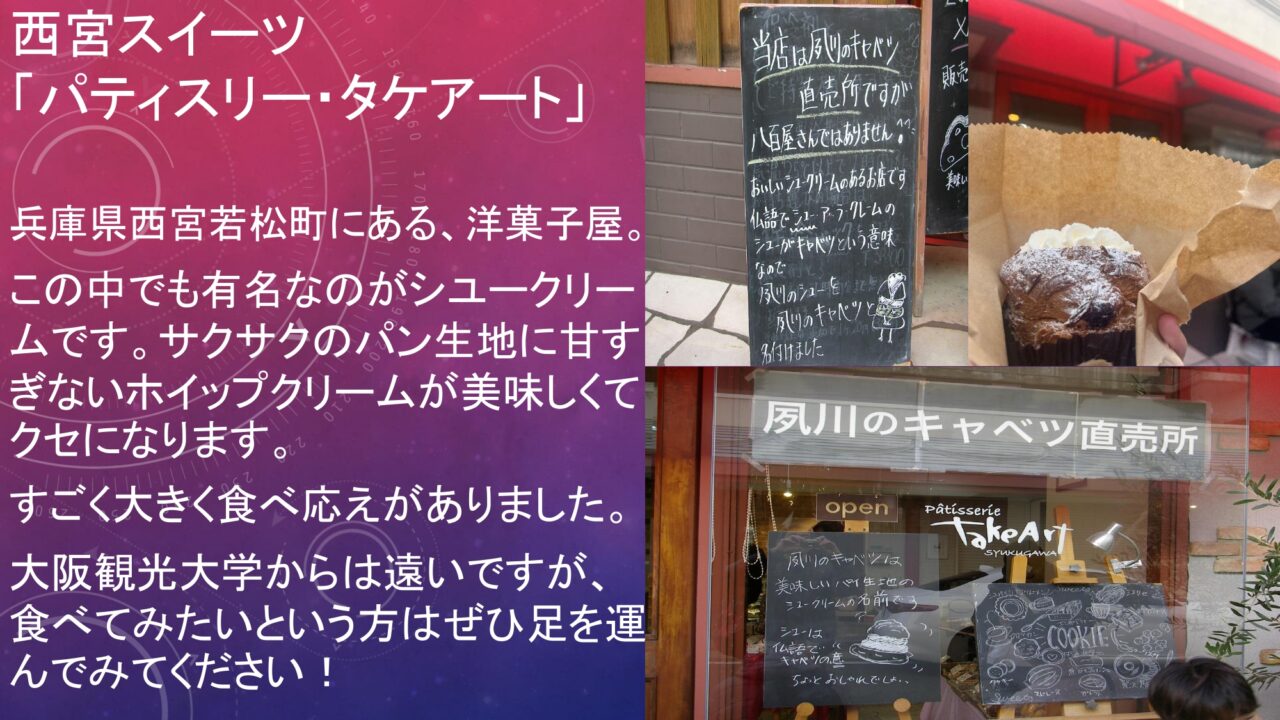 西宮スイーツ
「パティスリー・タケアート」
兵庫県西宮若松町にある、洋菓子屋。
この中でも有名なのがシユークリー
ムです。サクサクのパン生地に甘す
ぎないホイップクリームが美味しくて
クセになります。
すごく大きく食べ応えがありました。
大阪観光大学からは遠いですが、
食べてみたいという方はぜひ足を運
んでみてください！
当店は夙川のキャベツ
直売所ですが
八百屋さんではありません!
おいしいシュークリームのあるお店です
仏語でシュー・ア・ラ・クレームの
シューがキャベツという意味
なので
夙川のシューを
夙川のキャベツと
名付けました
販売
美味し
夙川のキャベツ直売所
open
Pâtisserie
TakeArt
SYUKUGAWA
夙川のキャベツは
美味しいパイ生地の
シュークリームの名前です
シューは
仏語で‥
キャベツの意
ちょっとおしゃれでしょ‥
COOKIE